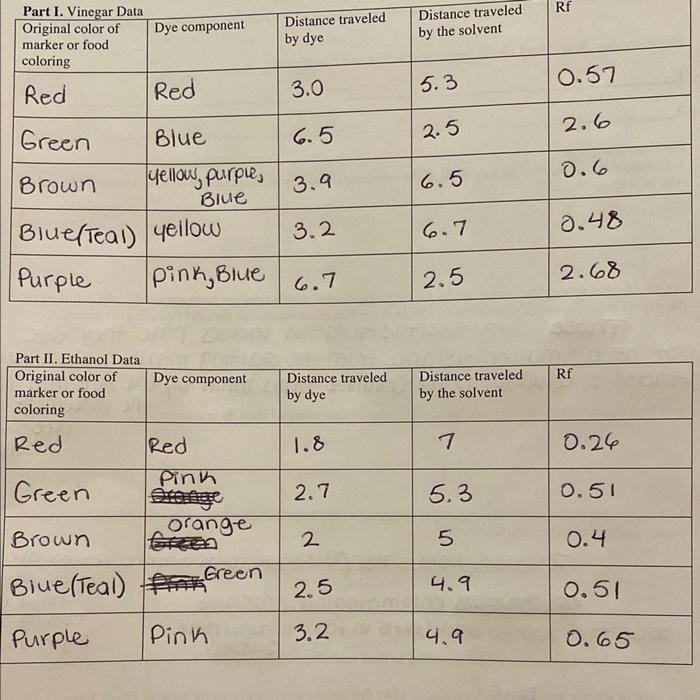 Part I. Vinegar Data
Original color of marker or food coloring Dye component Distance traveled by dye Distance traveled by the solvent Rf
Red Red 3.0 5.3 0.57
Green Blue 6.5 2.5 2.6
Brown yellow, purple, Blue 3.9 6.5 0.6
Blue(Teal) yellow 3.2 6.7 0.48
Purple pink, Blue 6.7 2.5 2.68
Part II. Ethanol Data
Original color of marker or food coloring Dye component Distance traveled by dye Distance traveled by the solvent Rf
Red Red 1.8 7 0.26
Green Pink Orange 2.7 5.3 0.51
Brown orange Green 2 5 0.4
Blue(Teal) Pink Green 2.5 4.9 0.51
Purple Pink 3.2 4.9 0.65